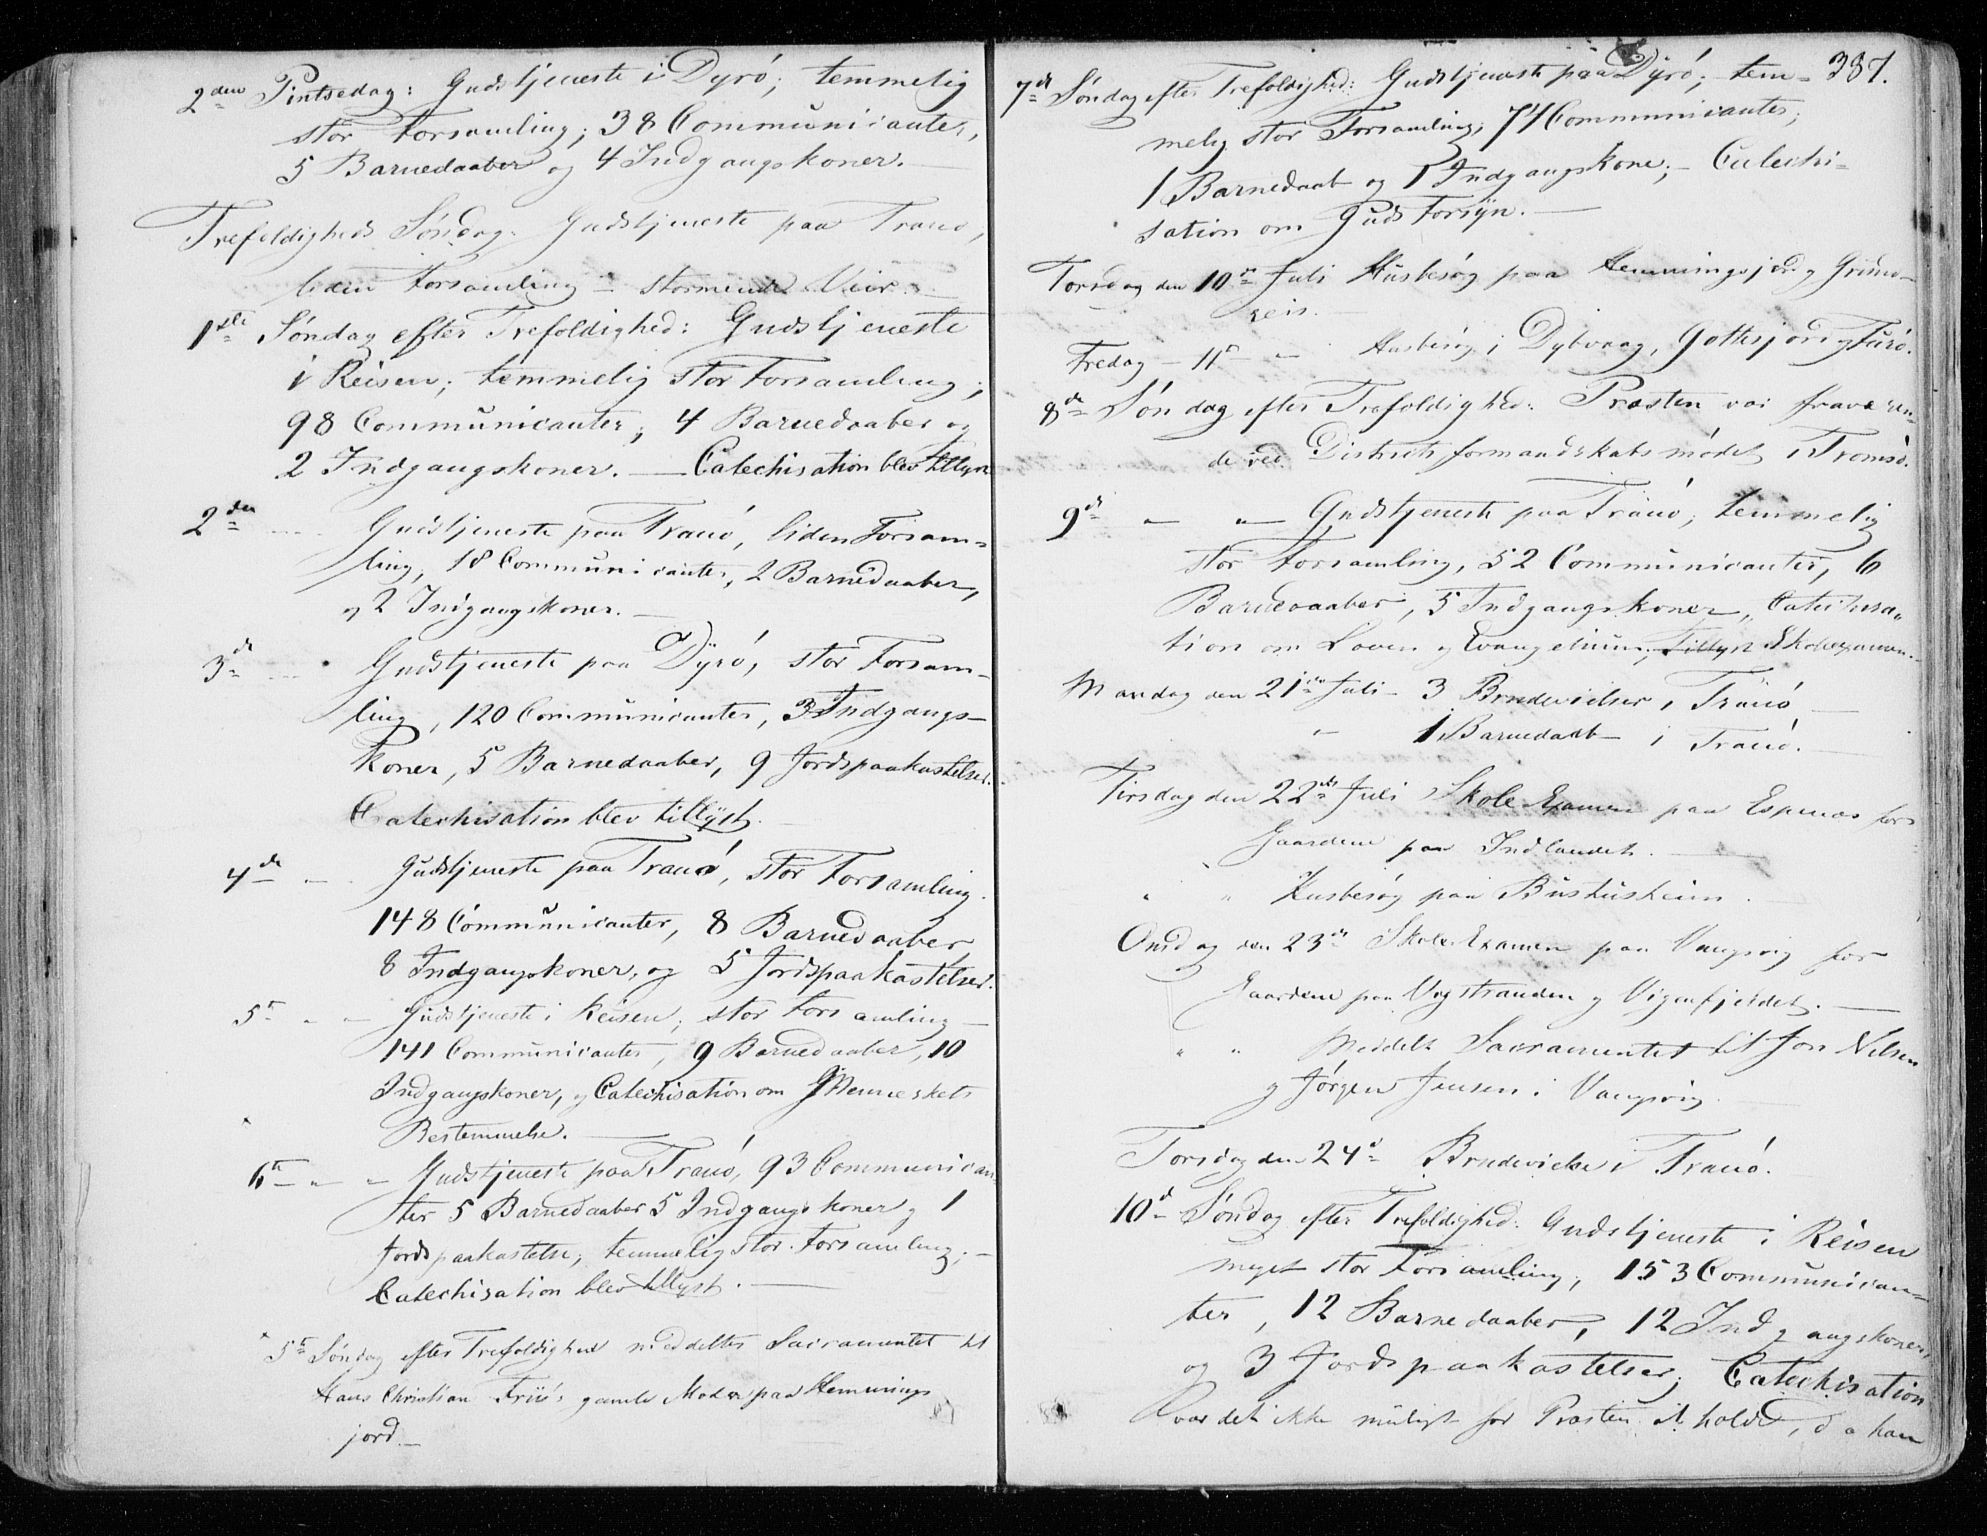 2den Pintsedag: Gudstjeneste i Dyrö; temmelig
stor Forsamling; 38 Communicanter,
5 Barnedaaber og 4 Indgangskoner. —
Trefoldigheds Söndag. Gudstjeneste paa Tranö,
liden Forsamling – stormende Veir. —
1ste Söndag efter Trefoldighed: Gudstjeneste
i Reisen; temmelig stor Forsamling;
98 Communicanter, 4 Barnedaaber og
2 Indgangskoner. — Catechisation blev tillyst
2den Gudstjeneste paa Tranö, liden Forsam=
ling, 18 Communicanter, 2 Barnedaaber,
og 2 Indgangskoner. —
3de Gudstjeneste paa Dyrö, stor Forsam-
ling, 120 Communicanter, 3 Indgangs-
koner, 5 Barnedaaber, 9 Jordspaakastelser.
Catechisation blev tillyst. —
4de Gudstjeneste paa Tranö, stor Forsamling.
148 Communicanter, 8 Barnedaaber
8 Indgangskoner, og 5 Jordspaakastelser.
5te " " Gudstjeneste i Reisen; stor Forsamling —
141 Communicanter, 9 Barnedaaber, 10
Indgangskoner, og Catechisation om Menneskets
Bestemmelse. —
6te " " Gudstjeneste paa Tranö, 93 Communican
ter 5 Barnedaaber 5 Indgangskoner og 1
Jordspaakastelse; temmelig stor Forsamling. —
Catechisation blev tillyst. —
5te Söndag efter Trefoldighed meddeltes Sacramentet til
Hans Christian Friis's gamle Moder paa Hemmings
jord. —
387.
7de Söndag efter Trefoldighed: Gudstjeneste paa Dyrö; tem-
melig stor Forsamling; 71 Communicanter;
1 Barnedaab og 1 Indgangskone; – Catechi=
sation om Guds Forsyn. —
Torsdag den 10de Juli Husbesög paa Hemmingsjord, Grund-
reis. —
Fredag – 11te – Husbesög i Dybvaag, Gottesjord og
8de Söndag efter Trefoldighed: Præsten var fraværen
de ved Districtsformandskabsmödet i Tromsö.
9de " " Gudstjeneste paa Tranö, temmelig
stor Forsamling, 52 Communicanter, 6
Barnedaaber, 5 Indgangskoner, Catechisa-
tion om Loven og Evangelium, Tillyst Skoleexamen.
Mandag den 21de Juli – 3 Brudevielser i Tranö —
" 1 Barnedaab i Tranö. —
Tirsdag den 22de Juli Skole Examen paa Espenes for
Gaardene paa Indlandet. —
" " Husbesög paa Bushusheim. —
Onsdag den 23de Skole Examen paa Vangsvig for
Gaardene paa Vogstranden og Vigenfjeldet. —
" " Meddelt Sacramentet til Jon Nilsen
og Jörgen Jensen i Vangsvig. —
Torsdag den 24de Brudevielse i Tranö.
10de Söndag efter Trefoldighed: Gudstjeneste i Reisen
meget stor Forsamling, 153 Communican-
ter, 12 Barnedaaber, 12 Indgangskoner,
og 3 Jordspaakastelser; Catechisation
var det ikke muligt for Præsten at holde, da han